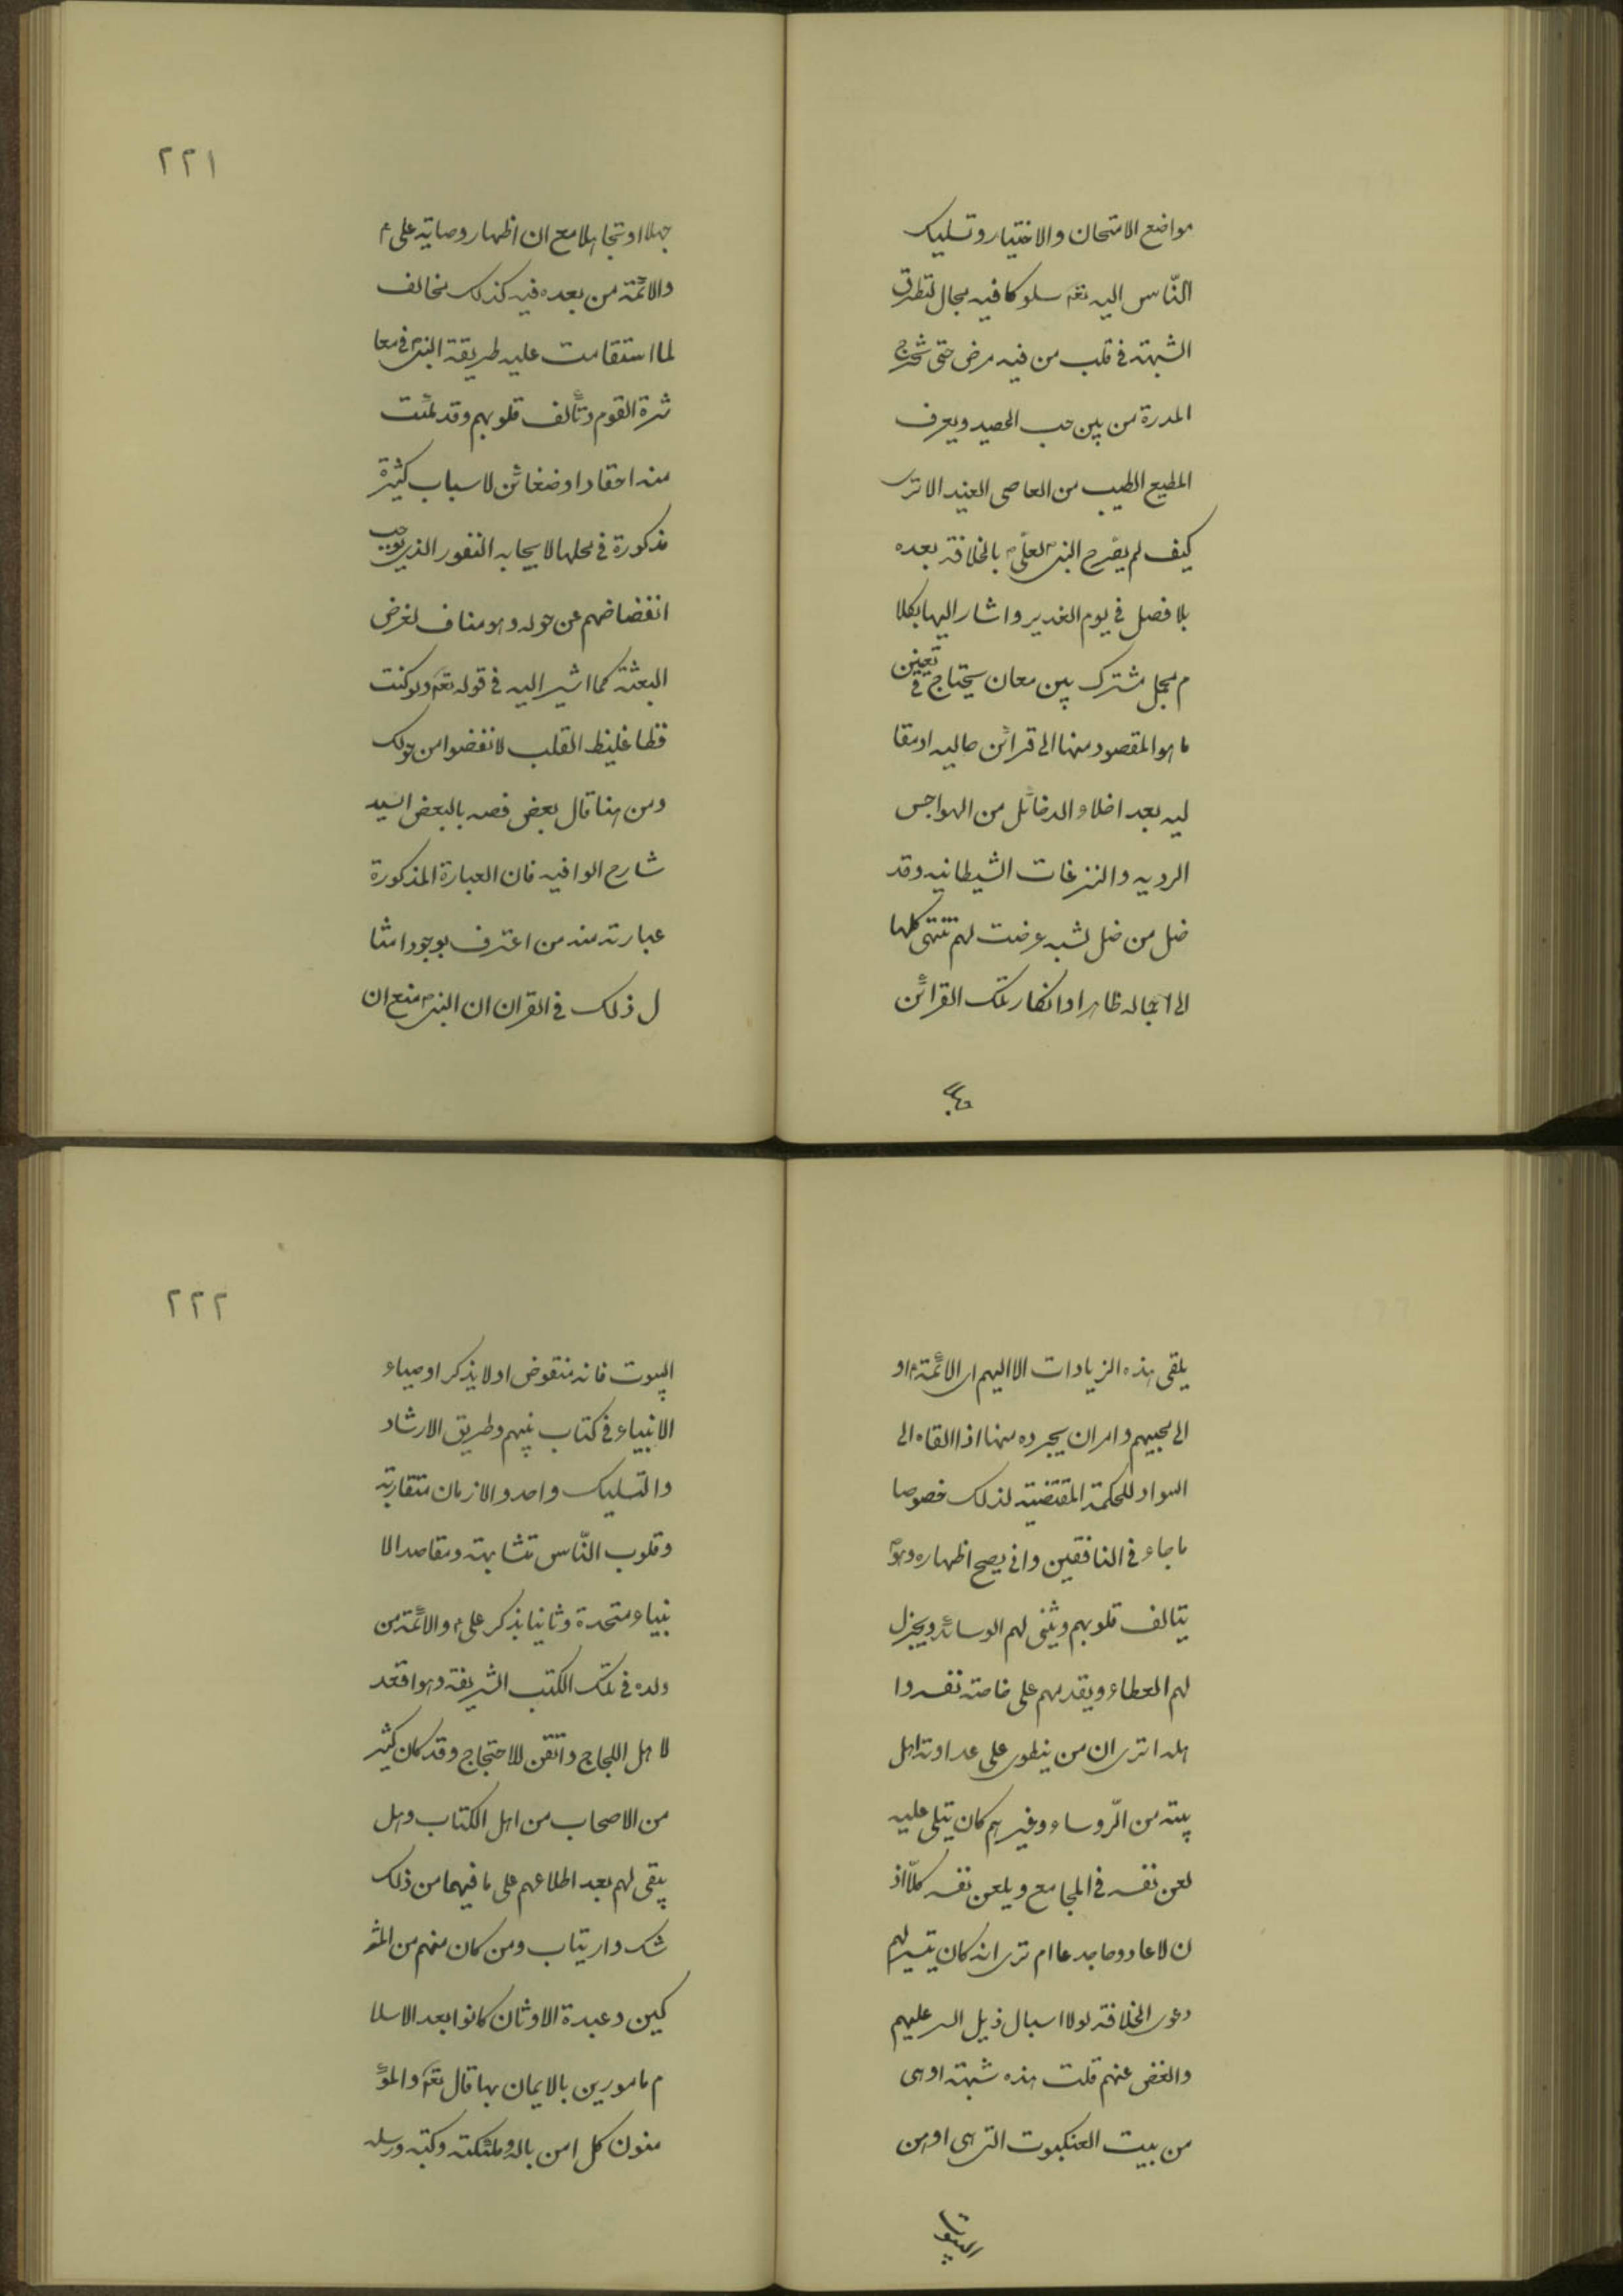 مواضع الامتحان والاختيار وتسليك
النّاس اليه تعم سلوكا فيه مجال لتطرق
الشبهة فى قلب من فيه مرض حتى تخرج
المدرة من بين حب الحصيد ويعرف
المطيع الطيب من العاصى العنيد الا ترى
كيف لم يصّرح النبى لعلى بالخلافة بعده
بلا فصل فى يوم الغدير واشار اليها بكلا
م مجمل مشترك بين معان يحتاج فى تعيين
ما هو المقصود منها الى قرائن حاليه او مقا
ليه بعد اخلاء الدخائل من الهواجس
الرديه والنزغات الشيطانيه وقد
ضل من ضل لشبه عرضت لهم تنتهى كلها
الى اجماله ظاهرا وانكار تلك القرائن
جهلا
٢٢١
جهلا او تجاهلا مع ان اظهار وصاية على ء
والائمّة من بعده فيه كذلك مخالف
لما استقامت عليه طريقة النبى فى معا
شرة القوم وتألف قلوبهم وقد ملئت
منه احقادا وضغائن لاسباب كثيرة
مذكورة فى محلها لايجابه النفور الذى يوجب
انفضاضهم عن حوله وهو مناف لغرض
البعثة كما اشير اليه فى قوله تعم ولو كنت
فظا غليظ القلب لانفضوا من حولك
ومن هنا قال بعض السيد
شارح الوافيه فان العبارة المذكورة
عبارته منه من اعترف بوجود امثا
ل ذلك فى القران ان النبى منع ان
يلقى هذه الزيادات الا اليهم اى الائمّة او
الى محبيهم وامر ان يجرده منها اذا القاه الى
السواد للحكمة المقتضية لذلك خصوصا
ما جاء فى النافقين وانى يصح اظهاره وهو
يتالف قلوبهم ويثنى لهم الوسائد ويجزل
لهم العطاء ويقدمهم على خاصته نفسه وا
هله اترى ان من ينطوى على عداوته اهل
بيته من الرّوساء وغيرهم كان يتلى عليه
لعن نفسه فى المجامع ويلعن نفسه كلّا اذ
ن لاعاد وحا جدعا ام ترى انه كان يتيسر لهم
دعوى الخلافة لولا اسبال ذيل الستر عليهم
والغض عنهم قلت هذه شبهة اوهى
من بيت العنكبوت التى هى اوهن
البيوت
٢٢٢
البيوت فانه منقوض اولا بذكر اوصياء
الانبياء فى كتاب نبيهم وطريق الارشاد
والتسليك واحد والازمان متقاربة
وقلوب النّاس تتشابهة ومقاصد الا
نبياء متحدة وثانيا بذكر على ء والائمّة من
ولده فى تلك الكتب الشريفة وهو اقعد
لاهل اللجاج واتقن للاحتجاج وقد كان كثير
من الاصحاب من اهل الكتاب وهل
يبقى لهم بعد اطلاعهم على ما فيهما من ذلك
شك وارتياب ومن كان منهم من المشر
كين وعبدة الاوثان كانوا بعد الاسلا
م مامورين بالايمان بها قال تعم والمؤ
منون كل امن بالله وملئكته وكتبه ورسله